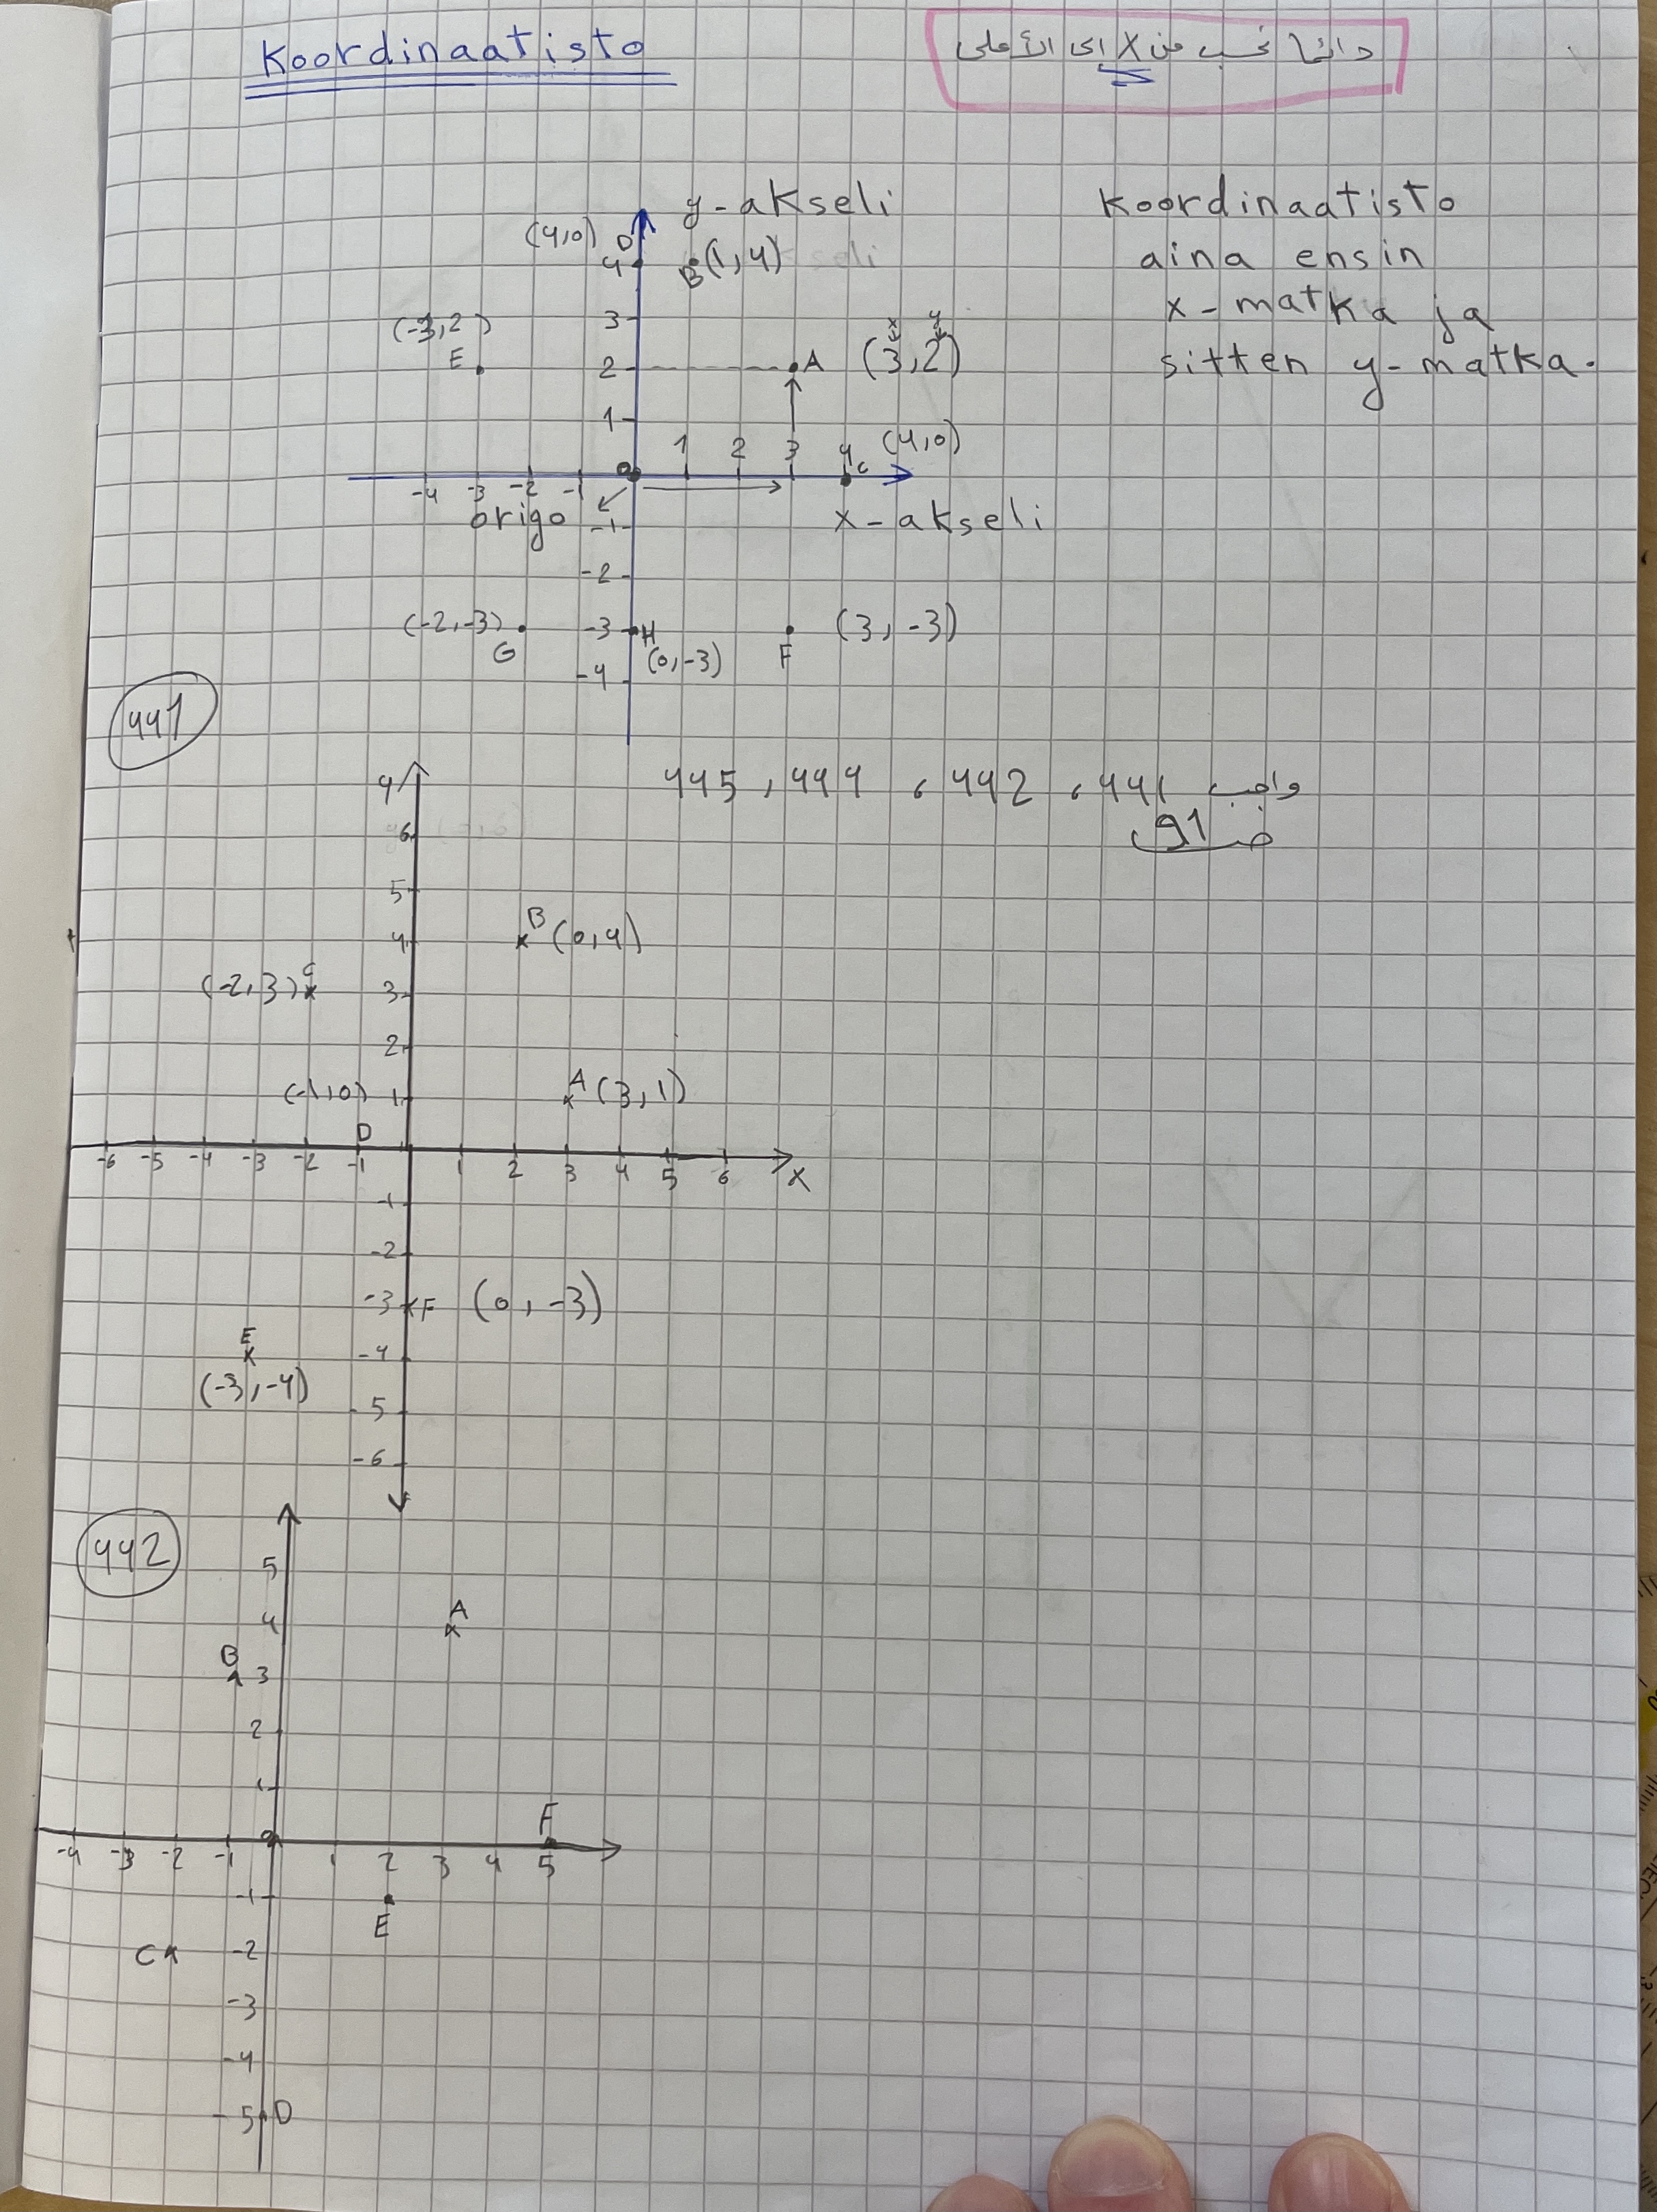 Koordinaatisto
دائما نحسب من X الى الأعلى
y-akseli
Koordinaatisto
aina ensin
x-matka ja
sitten y-matka.
(4,0) D
4 B (1,4)
3
(-3,2)
E
x y
2 A (3,2)
1
1 2 3 4 C (4,0)
0
-4 -3 -2 -1
origo
x-akseli
-1
-2
(-2,-3) G
-3 H (0,-3)
F (3,-3)
-4
441
واجب 441 ، 442 ، 444 , 445
صـ 91
y
6
5
4 B (0,4)
(-2,3) C
3
2
(-1,0) 1
A (3,1)
D
-6 -5 -4 -3 -2 -1 1 2 3 4 5 6 X
-1
-2
-3 F (0,-3)
E
-4
(-3,-4)
-5
-6
442
5
4 A
B 3
2
1
F
0
-4 -3 -2 -1 1 2 3 4 5
-1
E
C -2
-3
-4
-5 D